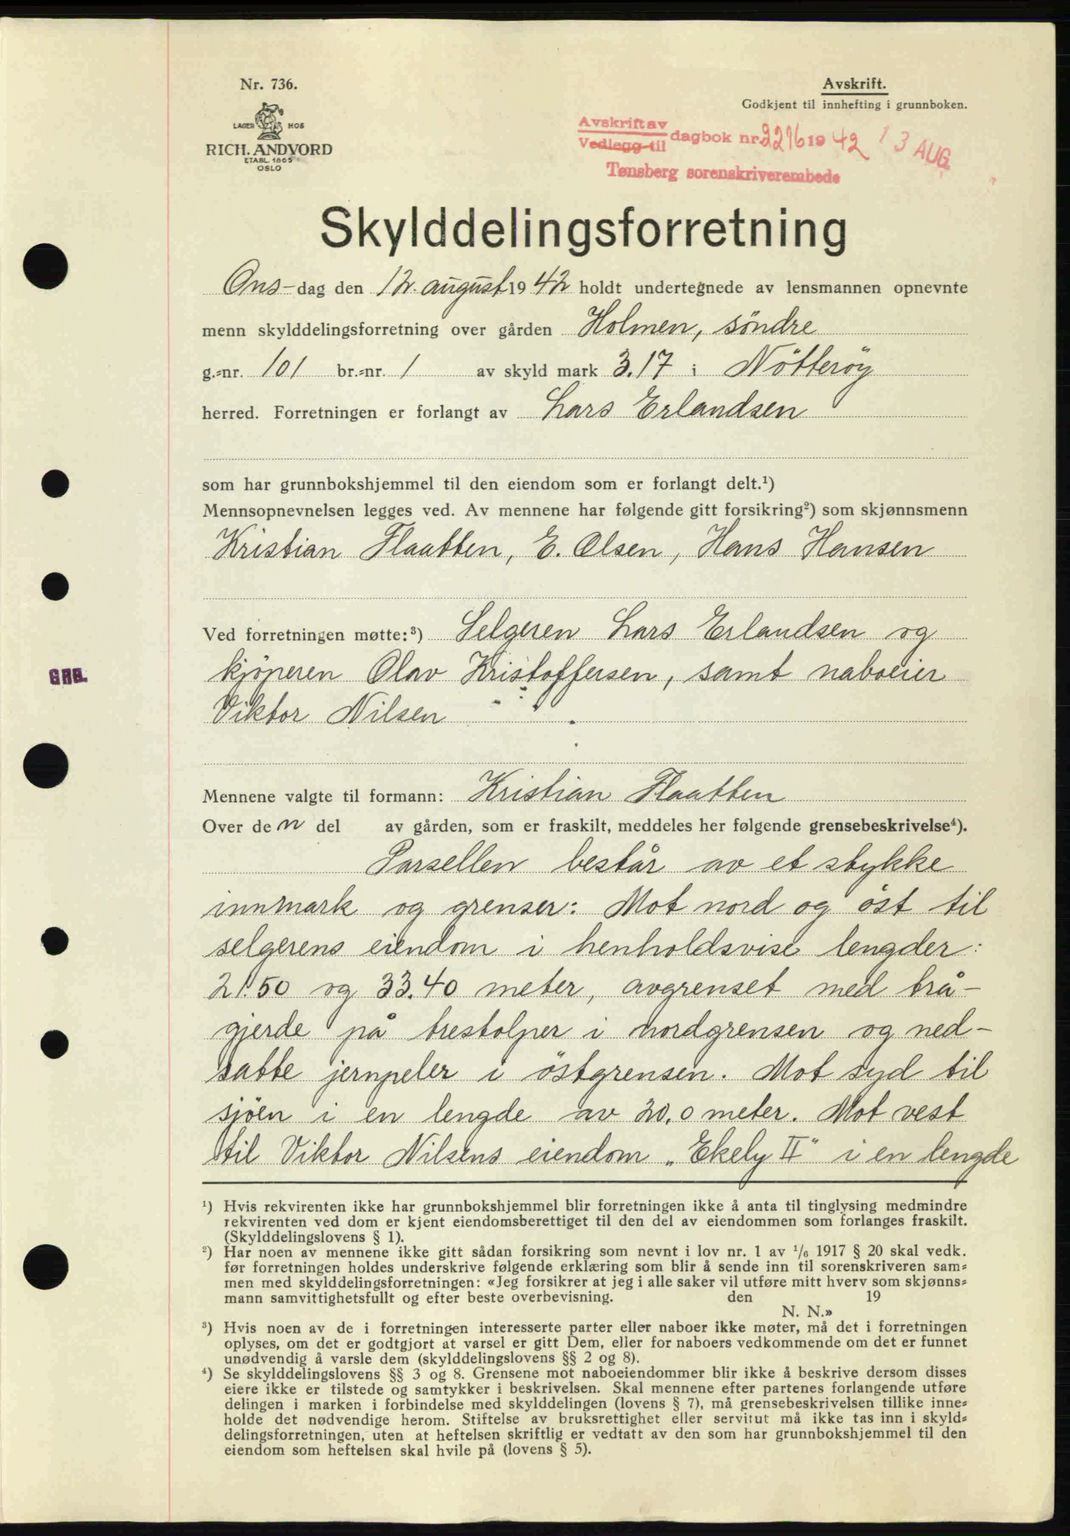 Nr. 736.
LAGER HOS
RICH. ANDVORD
ETABL. 1865
OSLO
Avskrift.
Godkjent til innhefting i grunnboken.
Avskrift av
Vedlegg til dagbok nr. 2216 1942 13 AUG.
Tønsberg sorenskriverembede
Skylddelingsforretning
Ons-dag den 12. august 1942 holdt undertegnede av lensmannen opnevnte
menn skylddelingsforretning over gården Holmen, söndre
g.-nr. 101 br.-nr. 1 av skyld mark 3.17 i Nötteröy
herred. Forretningen er forlangt av Lars Erlandsen
som har grunnbokshjemmel til den eiendom som er forlangt delt.¹)
Mennsopnevnelsen legges ved. Av mennene har følgende gitt forsikring²) som skjønnsmenn
Kristian Flaatten, E. Olsen, Hans Hansen
Ved forretningen møtte:³) Selgeren Lars Erlandsen og
kjöperen Olav Kristoffersen, samt naboeier
Viktor Nilsen
GRG.
Mennene valgte til formann: Kristian Flaatten
Over den del av gården, som er fraskilt, meddeles her følgende grensebeskrivelse⁴).
Parsellen består av et stykke
innmark og grenser: Mot nord og öst til
selgerens eiendom i henholdsvise lengder:
21.50 og 33.40 meter, avgrenset med trå-
gjerde på trestolper i nordgrensen og ned-
satte jernpeler i östgrensen. Mot syd til
sjöen i en lengde av 20,0 meter. Mot vest
til Viktor Nilsens eiendom „Ekely II“ i en lengde
¹) Hvis rekvirenten ikke har grunnbokshjemmel blir forretningen ikke å anta til tinglysing medmindre
rekvirenten ved dom er kjent eiendomsberettiget til den del av eiendommen som forlanges fraskilt.
(Skylddelingslovens § 1).
²) Har noen av mennene ikke gitt sådan forsikring som nevnt i lov nr. 1 av 1/6 1917 § 20 skal vedk.
før forretningen holdes underskrive følgende erklæring som blir å sende inn til sorenskriveren sam-
men med skylddelingsforretningen: «Jeg forsikrer at jeg i alle saker vil utføre mitt hverv som skjønns-
mann samvittighetsfullt og efter beste overbevisning. den 19
N. N.»
³) Hvis noen av de i forretningen interesserte parter eller naboer ikke møter, må det i forretningen
oplyses, om det er godtgjort at varsel er gitt Dem, eller for naboers vedkommende om det er funnet
unødvendig å varsle dem (skylddelingslovens §§ 2 og 8).
⁴) Se skylddelingslovens §§ 3 og 8. Grensene mot naboeiendommer blir ikke å beskrive dersom disses
eiere ikke er tilstede og samtykker i beskrivelsen. Skal mennene efter partenes forlangende utføre
delingen i marken i forbindelse med skylddelingen (lovens § 7), må grensebeskrivelsen tillike inne-
holde det nødvendige herom. Stiftelse av bruksrettighet eller servitut må ikke tas inn i skyld-
delingsforretningen, uten at heftelsen skriftlig er vedtatt av den som har grunnbokshjemmel til den
eiendom som heftelsen skal hvile på (lovens § 5).